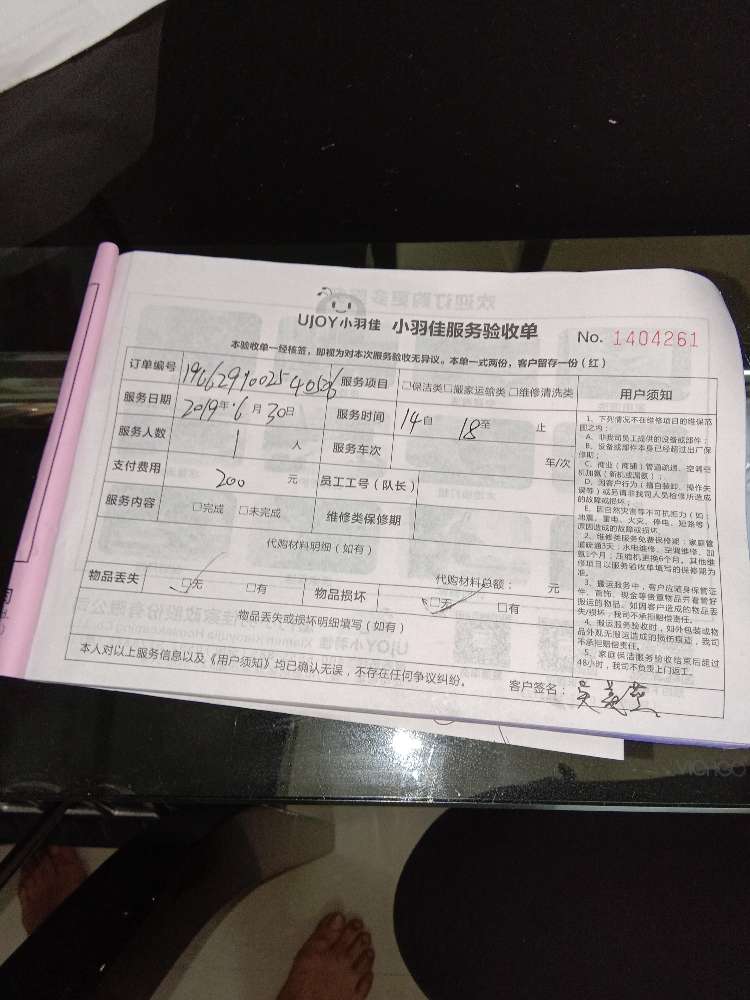 UJOY小羽佳 小羽佳服务验收单 No. 1404261
本验收单一经核签，即视为对本次服务验收无异议。本单一式两份，客户留存一份（红）
订单编号 服务项目 □保洁类□搬家运输类□维修清洗类 用户须知
服务日期 2019年6月30日 服务时间 14自 18至 止
服务人数 1 人 服务车次 车/次
支付费用 200 元 员工工号（队长）
服务内容 □完成 □未完成 维修类保修期
代购材料明细（如有）
代购材料总额： 元
物品丢失 □无 □有 物品损坏 □无 □有
物品丢失或损坏明细填写（如有）
本人对以上服务信息以及《用户须知》均已确认无误，不存在任何争议纠纷。 客户签名：
1、下列情况不在维修项目的维保范
围之内：
A、非我司员工提供的设备或部件；
B、设备或部件本身已经超过出厂保
修期；
C、商业（商铺）管道疏通、空调空
机加氨（新机或漏氨）；
D、因客户行为（擅自装卸、操作失
误等）或另请非我司人员检修所造成
的故障或损坏；
E、因自然灾害等不可抗拒力（如：
地震、雷电、火灾、停电、短路等）
原因造成的故障或损坏
2、维修类服务免费保修期：家庭管
道疏通3天；水电维修、空调维修、加
氨1个月；压缩机更换6个月。其他维
修项目以服务验收单填写的保修期为
准。
3、搬运服务中，客户应随身保管证
件、首饰、现金等贵重物品并看管好
搬运的物品。如因客户造成的物品丢
失/损坏，我司不承担赔偿责任。
4、搬运服务验收时，如外包装或物
品外观无搬运造成的损伤痕迹，我司
不承担赔偿责任。
5、家庭保洁服务验收结束后超过
48小时，我司不负责上门返工。